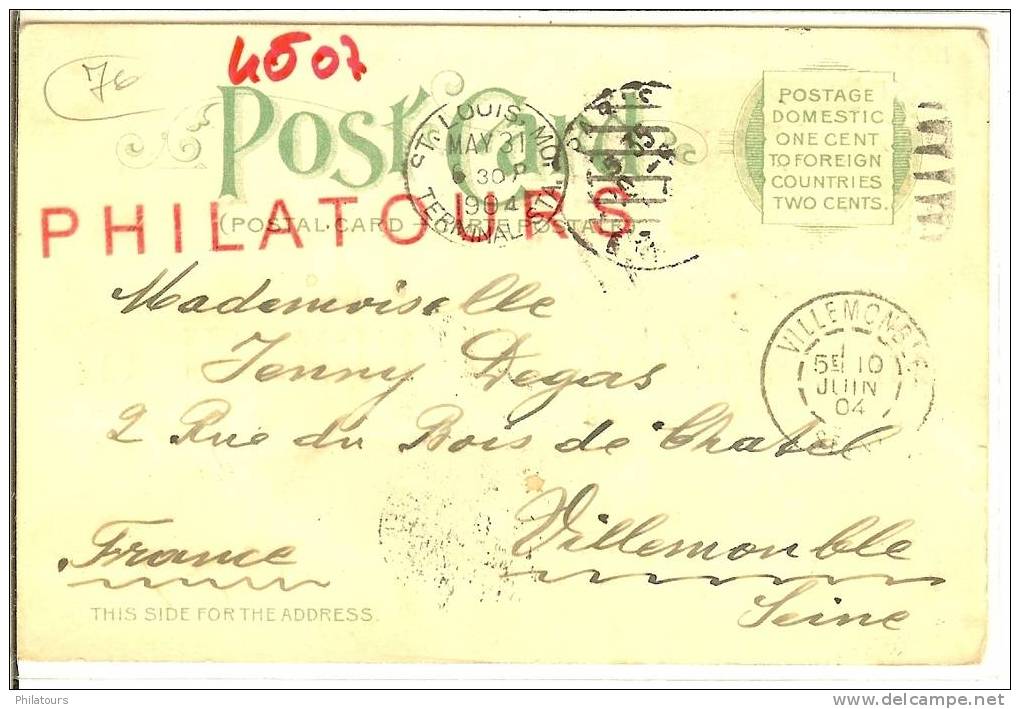 7€
4507
Post Card
(POSTAL CARD - CARTE POSTALE)
PHILATOURS
ST. LOUIS, MO.
MAY 31
30 P
1904
TERMINAL STA.
POSTAGE
DOMESTIC
ONE CENT
TO FOREIGN
COUNTRIES
TWO CENTS.
Mademoiselle
Jenny Degas
2 Rue du Bois de Chatel
Villemonble
Seine
France
VILLEMOMBLE
5E 10
JUIN
04
THIS SIDE FOR THE ADDRESS.
Philatours
http://www.delcampe.net